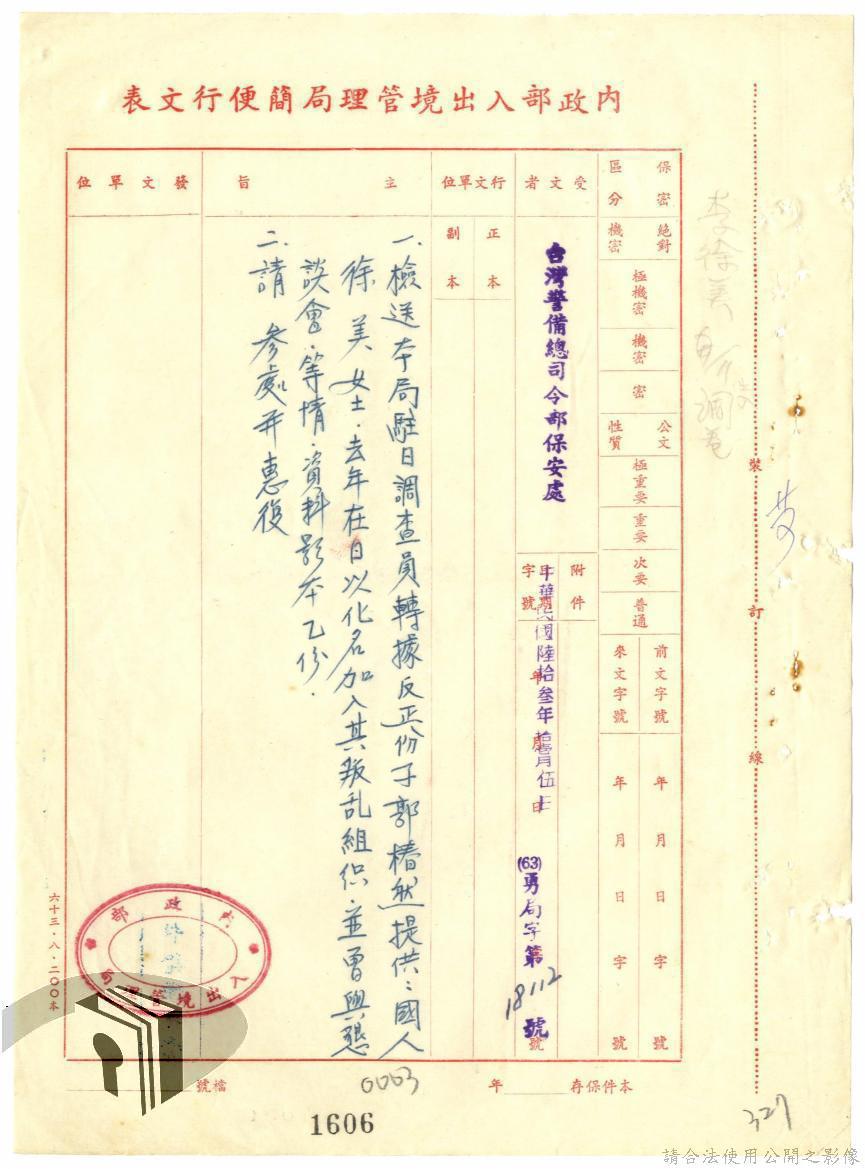 內政部入出境管理局簡便行文表
保密區分
絕對機密
極機密
機密
密
公文性質
極重要
重要
次要
普通
前文字號
年月日字號
來文字號
年月日字號
受文者
台灣警備總司令部保安處
附件
字號
日期
中華民國陸拾叁年拾壹月伍日
年月日
(63)勇局字第18112號
號
行文單位
正本
副本
主旨
一、檢送本局駐日調查員轉據反正份子郭椿然提供:國人
徐美女士.去年在日以化名加入其叛乱組織並曾與懇
談會.等情.資料影本乙份.
二、請參處并惠復
發文單位
裝
訂
線
內政部
入出境管理局
六十三.八.二〇〇本
本件保存
年
0063
檔號
1606
327
請合法使用公開之影像